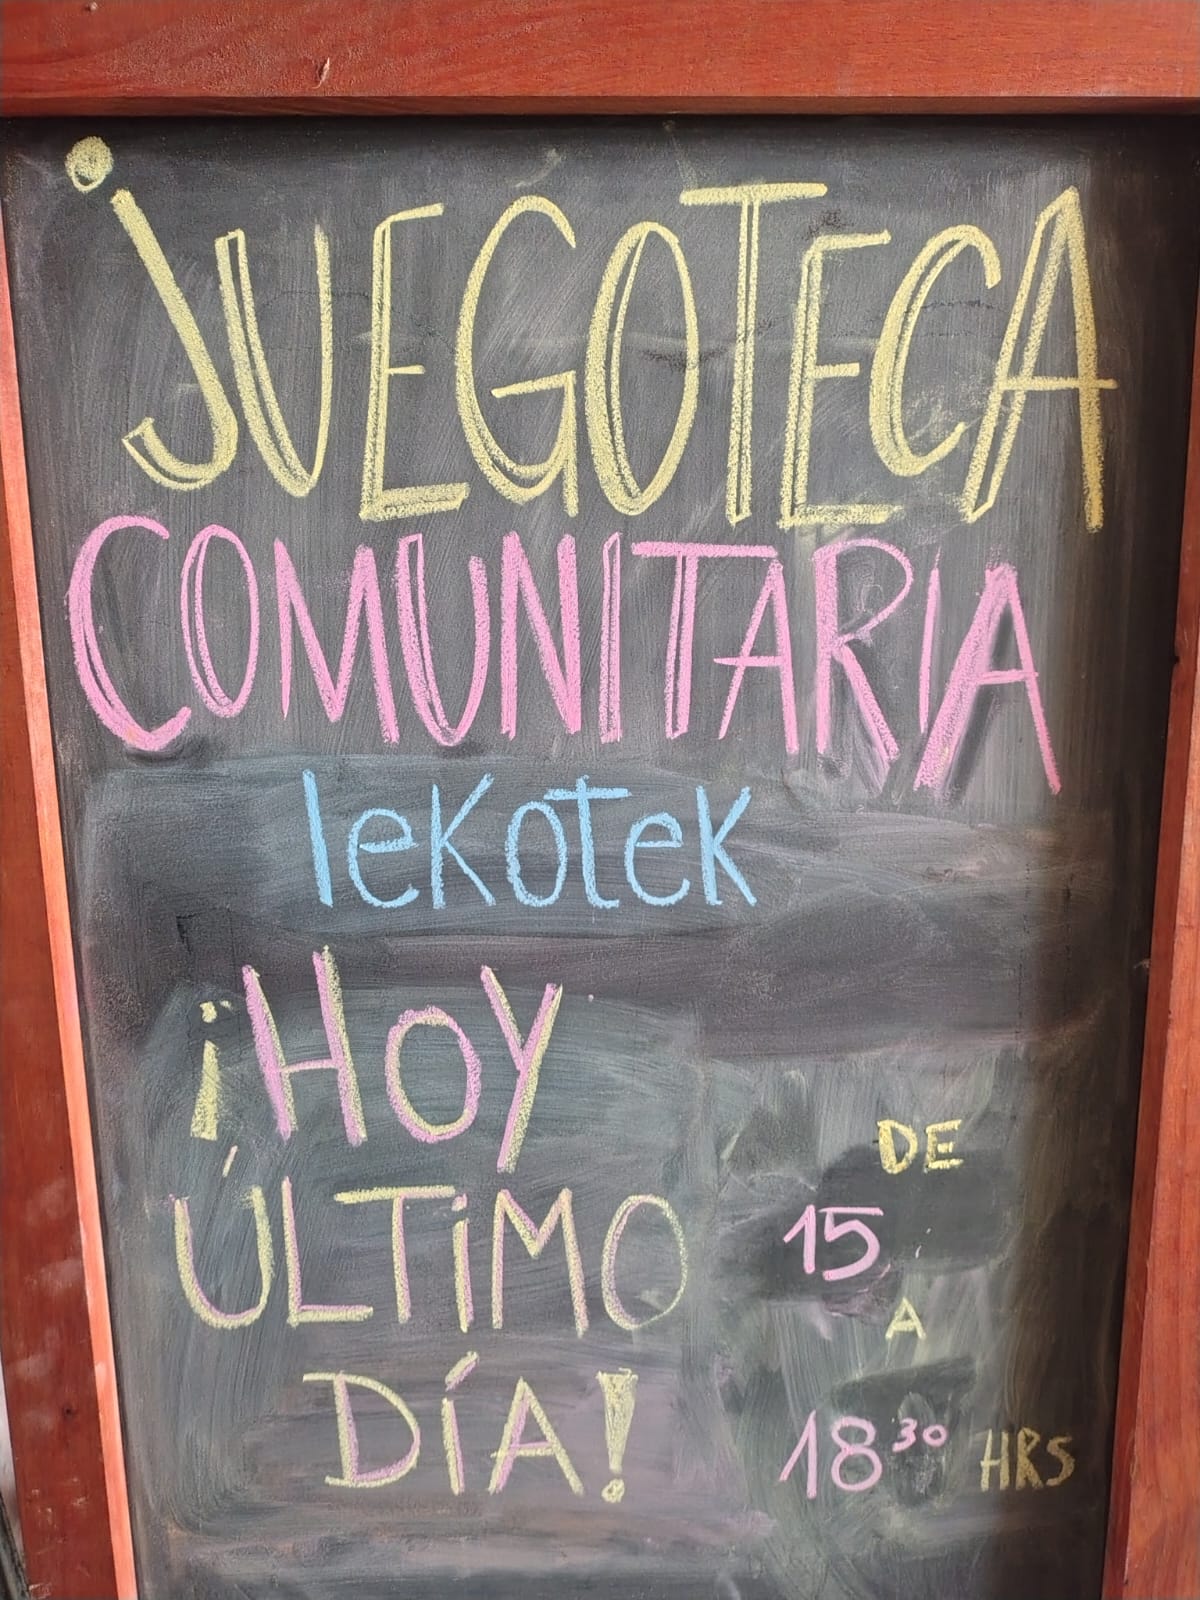 ¡JUEGOTECA
COMUNITARIA
lekotek
¡HOY
ÚLTIMO
DÍA!
DE
15
A
18³⁰ HRS